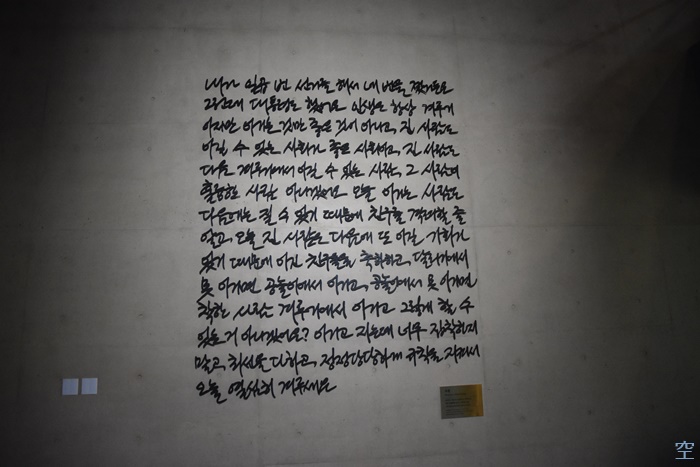 내가 일곱 번 선거를 해서 네 번을 졌거든요
그런데 대통령도 했어요 인생은 항상 겨루기
이지만 이기는 것만 좋은 것이 아니고, 진 사람도
이길 수 있는 사회가 좋은 사회이고, 진 사람도
다음 겨루기에서 이길 수 있는 사람, 그 사람이
훌륭한 사람 아니겠어요 오늘 이기는 사람도
다음에는 질 수 있기 때문에 친구를 격려할 줄
알고, 오늘 진 사람은 다음에 또 이길 기회가
있기 때문에 이긴 친구들을 축하하고, 달리기에서
못 이기면 공놀이에서 이기고, 공놀이에서 못 이기면
착한 사람으로 겨루기에서 이기고 그렇게 할 수
있는 거 아니겠어요? 이기고 지는데 너무 집착하지
말고, 최선을 다하고, 정정당당하게 규칙을 지켜서
오늘 열심히 겨루세요
空